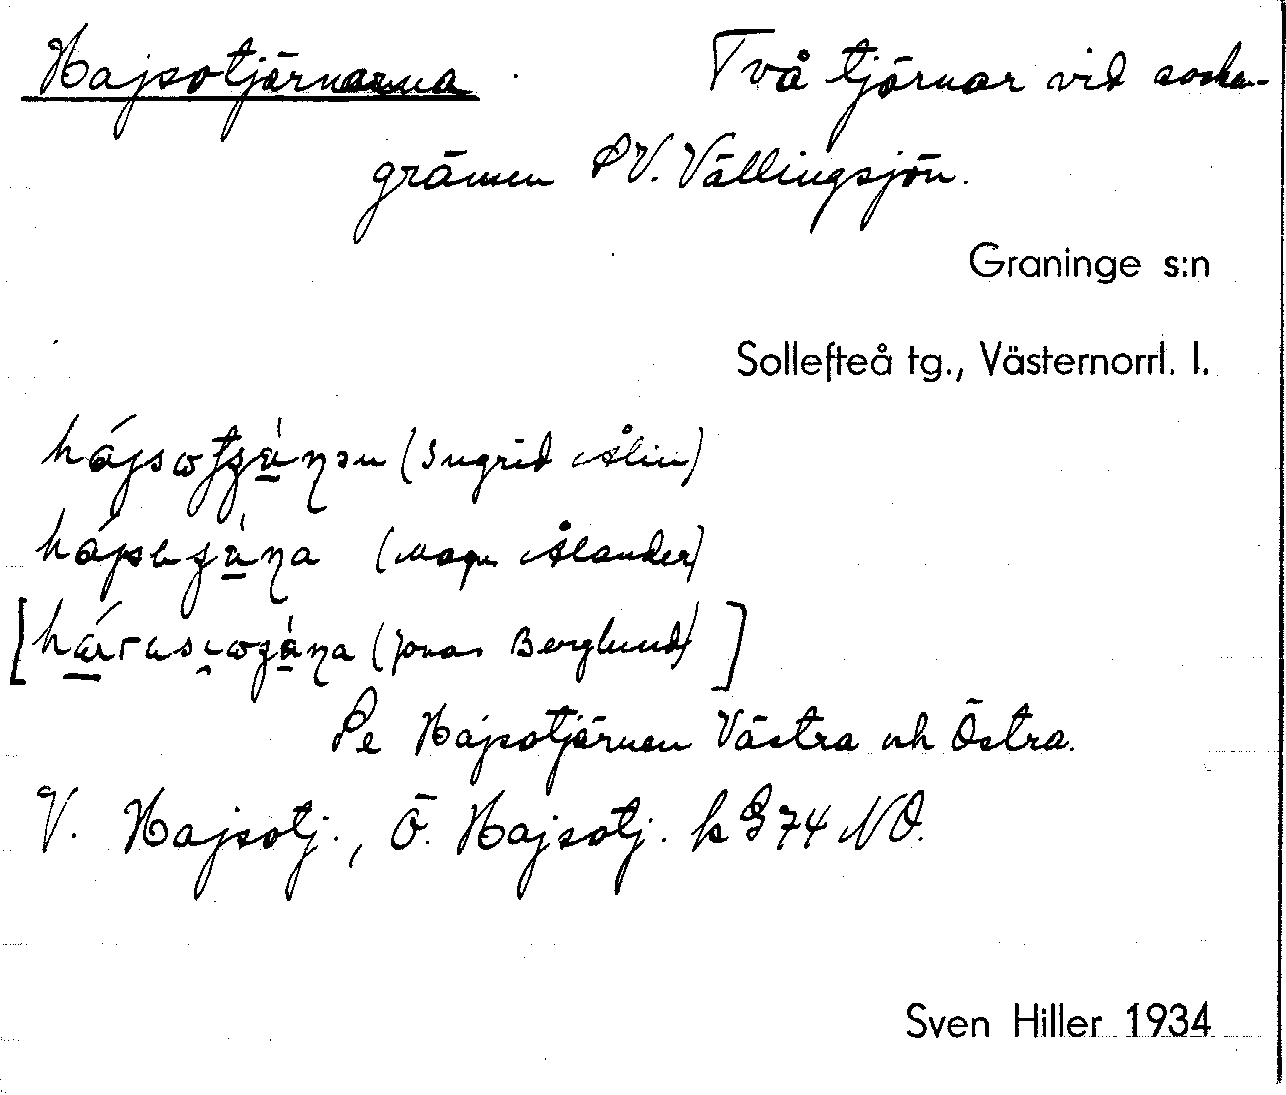 Hajsotjärnarna. Två tjärnar vid socken-
gränsen SV. Vällingsjön.
Graninge s:n
Sollefteå tg., Västernorrl. l.
(Ingrid Ålin)
(Magn Ålander)
(Jonas Berglund)]
Pe Hajsotjärnen Västra och Östra.
V. Hajsotj., Ö. Hajsotj. k G 74 NO.
Sven Hiller 1934